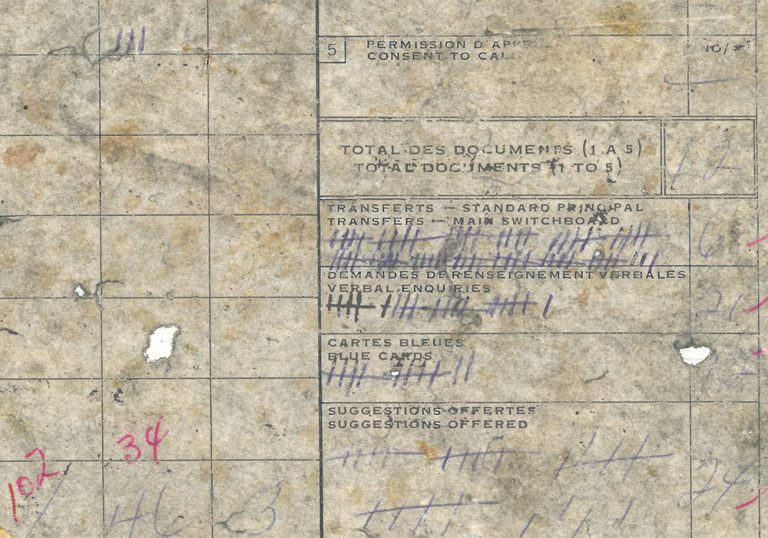 5 PERMISSION D'APP
CONSENT TO CAL
NO/#
TOTAL DES DOCUMENTS (1 A 5)
TOTAL DOCUMENTS (1 TO 5)
12
TRANSFERTS — STANDARD PRINCIPAL
TRANSFERS — MAIN SWITCHBOARD
DEMANDES DE RENSEIGNEMENT VERBALES
VERBAL ENQUIRIES
21
CARTES BLEUES
BLUE CARDS
12
SUGGESTIONS OFFERTES
SUGGESTIONS OFFERED
34
102
24
46 3